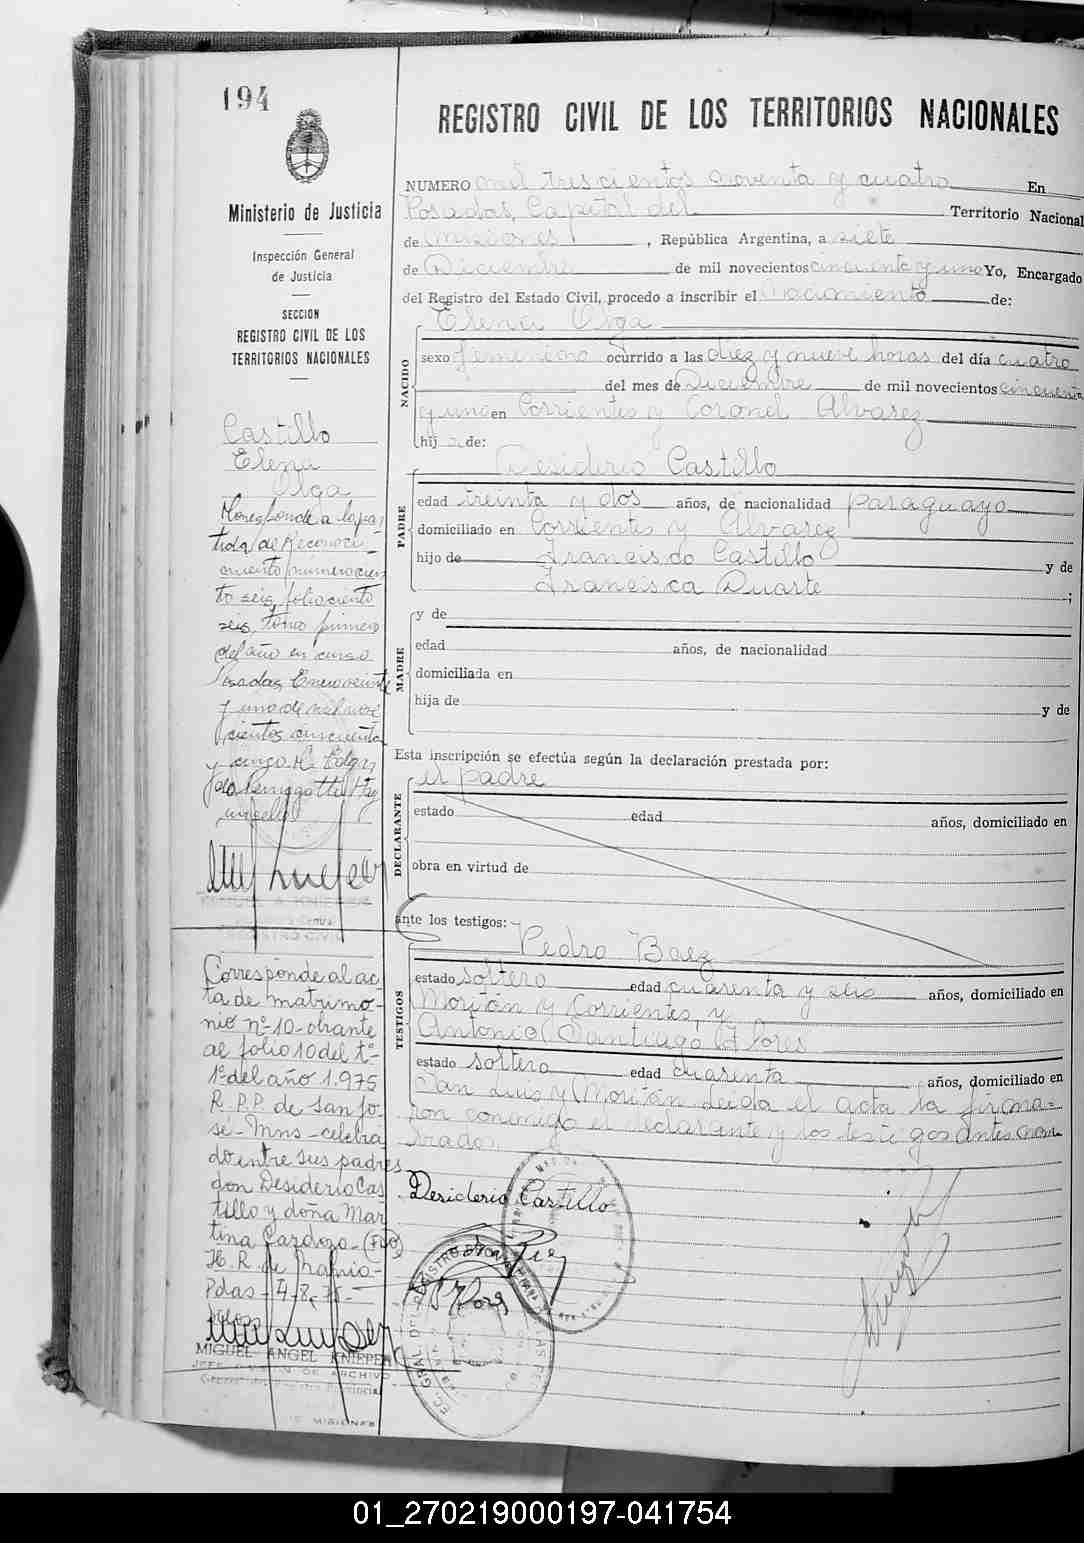 194
Ministerio de Justicia
Inspección General
de Justicia
SECCION
REGISTRO CIVIL DE LOS
TERRITORIOS NACIONALES
Castillo
Elena
Olga
a la par
tida de Reconoci-
miento número cien
to seis, folio ciento
seis, tomo primero
del año en curso
Posadas, Enero veinte
y uno de mil nove
cientos cincuenta
y cinco
Corresponde al ac
ta de matrimo-
nio nº 10 obrante
al folio 10 del tº
1º del año 1.975
R.P.P. de San Jo-
se - Mns - celebra
do entre sus padres
don Desiderio Cas
tillo y doña Mar
tina Cardozo - (FDO)
H. R. de
Pdas - 4-8-
MIGUEL ANGEL KNIEPER
JEFE DIVISION DE ARCHIVO
MISIONES
REGISTRO CIVIL DE LOS TERRITORIOS NACIONALES
NUMERO mil trescientos noventa y cuatro En
Posadas, Capital del Territorio Nacional
de Misiones, República Argentina, a siete
de Diciembre de mil novecientos cincuenta y uno Yo, Encargado
del Registro del Estado Civil, procedo a inscribir el nacimiento de:
Elena Olga
NACIDO
sexo femenino ocurrido a las diez y nueve horas del día cuatro
del mes de Diciembre de mil novecientos cincuenta
y uno en Corrientes y Coronel Alvarez
hij a de:
Desiderio Castillo
PADRE
edad treinta y dos años, de nacionalidad paraguayo
domiciliado en Corrientes y Alvarez
hijo de Francisco Castillo y de
Francisca Duarte ;
y de
MADRE
edad años, de nacionalidad
domiciliada en
hija de y de
Esta inscripción se efectúa según la declaración prestada por:
el padre
DECLARANTE
estado edad años, domiciliado en
obra en virtud de
ante los testigos:
Pedro Baez
TESTIGOS
estado soltero edad cuarenta y seis años, domiciliado en
Moritán y Corrientes, y
Antonio Santiago Flores
estado soltero edad cuarenta años, domiciliado en
San Luis y Moritán Leida el acta la firma=
ron conmigo el declarante y los testigos antes nom
brados.
Desiderio Castillo
01_270219000197-041754